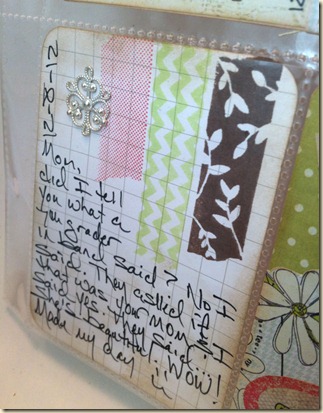 12-8-12
Mom,
did I tell
you what a
7th grader
in band said? No I
said. They asked
that was your mom.
said yes. they said...
She's beautiful. WOW!
Made my day